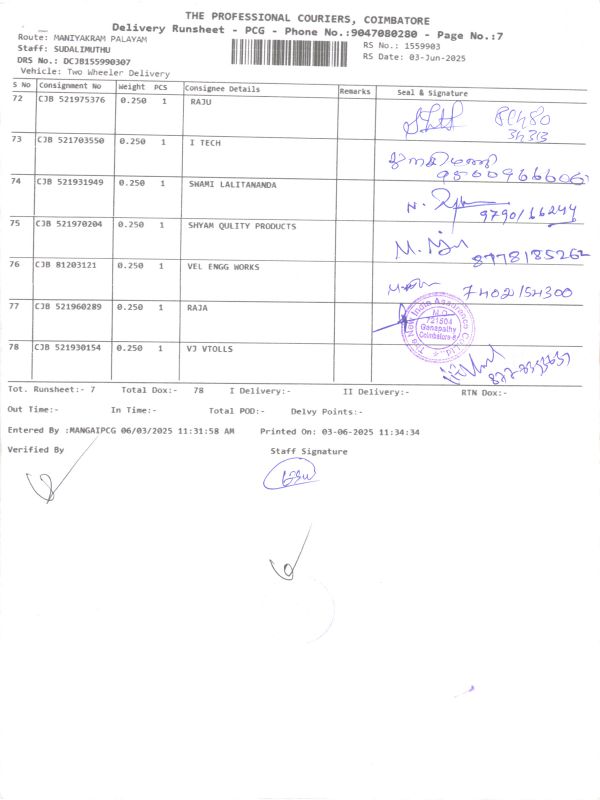 THE PROFESSIONAL COURIERS, COIMBATORE
Delivery Runsheet - PCG - Phone No.:9047080280 - Page No.:7
Route: MANIYAKRAM PALAYAM
RS No.: 1559903
Staff: SUDALIMUTHU
RS Date: 03-Jun-2025
DRS No.: DCJB155990307
Vehicle: Two Wheeler Delivery
S No Consignment No Weight PCS Consignee Details Remarks Seal & Signature
72 CJB 521975376 0.250 1 RAJU
73 CJB 521703550 0.250 1 I TECH
74 CJB 521931949 0.250 1 SWAMI LALITANANDA
75 CJB 521970204 0.250 1 SHYAM QULITY PRODUCTS
8778185262
76 CJB 81203121 0.250 1 VEL ENGG WORKS
7402154300
77 CJB 521960289 0.250 1 RAJA
The New India Assurance Co. Ltd.
M.O.
721504
Ganapathy
Coimbatore-6
78 CJB 521930154 0.250 1 VJ VTOLLS
Tot. Runsheet:- 7 Total Dox:- 78 I Delivery:- II Delivery:- RTN Dox:-
Out Time:- In Time:- Total POD:- Delvy Points:-
Entered By :MANGAIPCG 06/03/2025 11:31:58 AM Printed On: 03-06-2025 11:34:34
Verified By Staff Signature